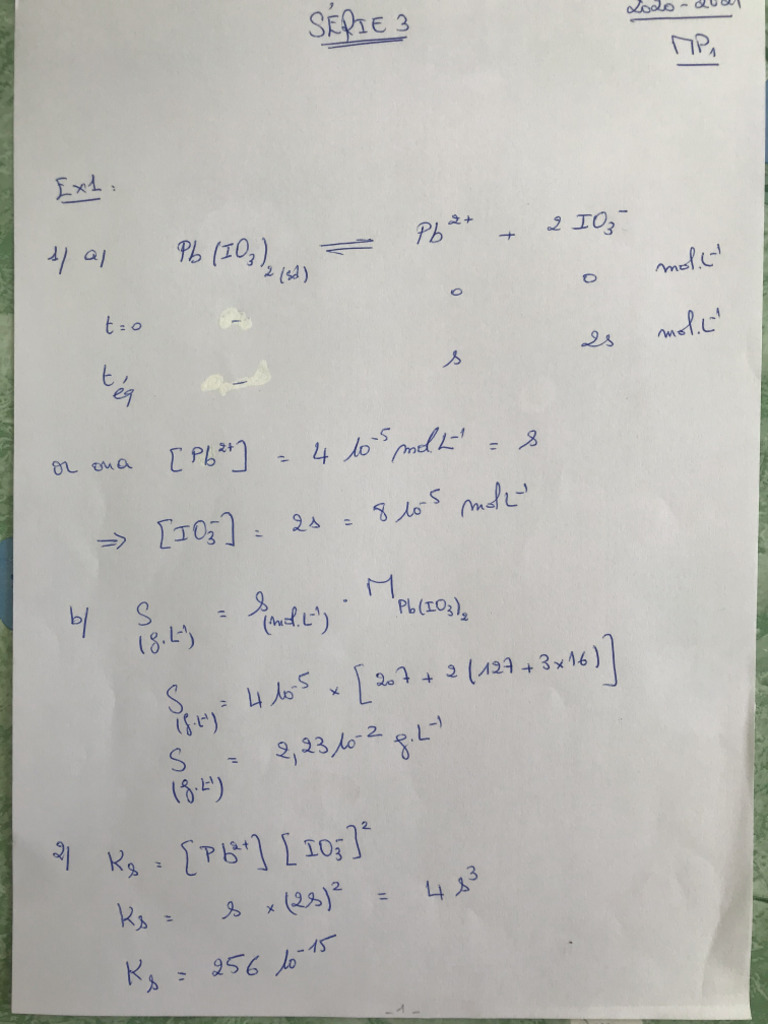 SÉRIE 3
2020-2021
MP₁
Ex1 :
1/ a/ Pb(IO₃)₂(sd) ⇌ Pb²⁺ + 2 IO₃⁻
t=0 - 0 0 mol.L⁻¹
t éq - s 2s mol.L⁻¹
or on a [Pb²⁺] = 4 10⁻⁵ mol L⁻¹ = s
⇒ [IO₃⁻] = 2s = 8 10⁻⁵ mol L⁻¹
b/ S (g.L⁻¹) = s (mol.L⁻¹) . M Pb(IO₃)₂
S (g.L⁻¹) = 4 10⁻⁵ × [207 + 2(127 + 3×16)]
S (g.L⁻¹) = 2,23 10⁻² g.L⁻¹
2/ Ks = [Pb²⁺] [IO₃⁻]²
Ks = s × (2s)² = 4 s³
Ks = 256 10⁻¹⁵
-1-